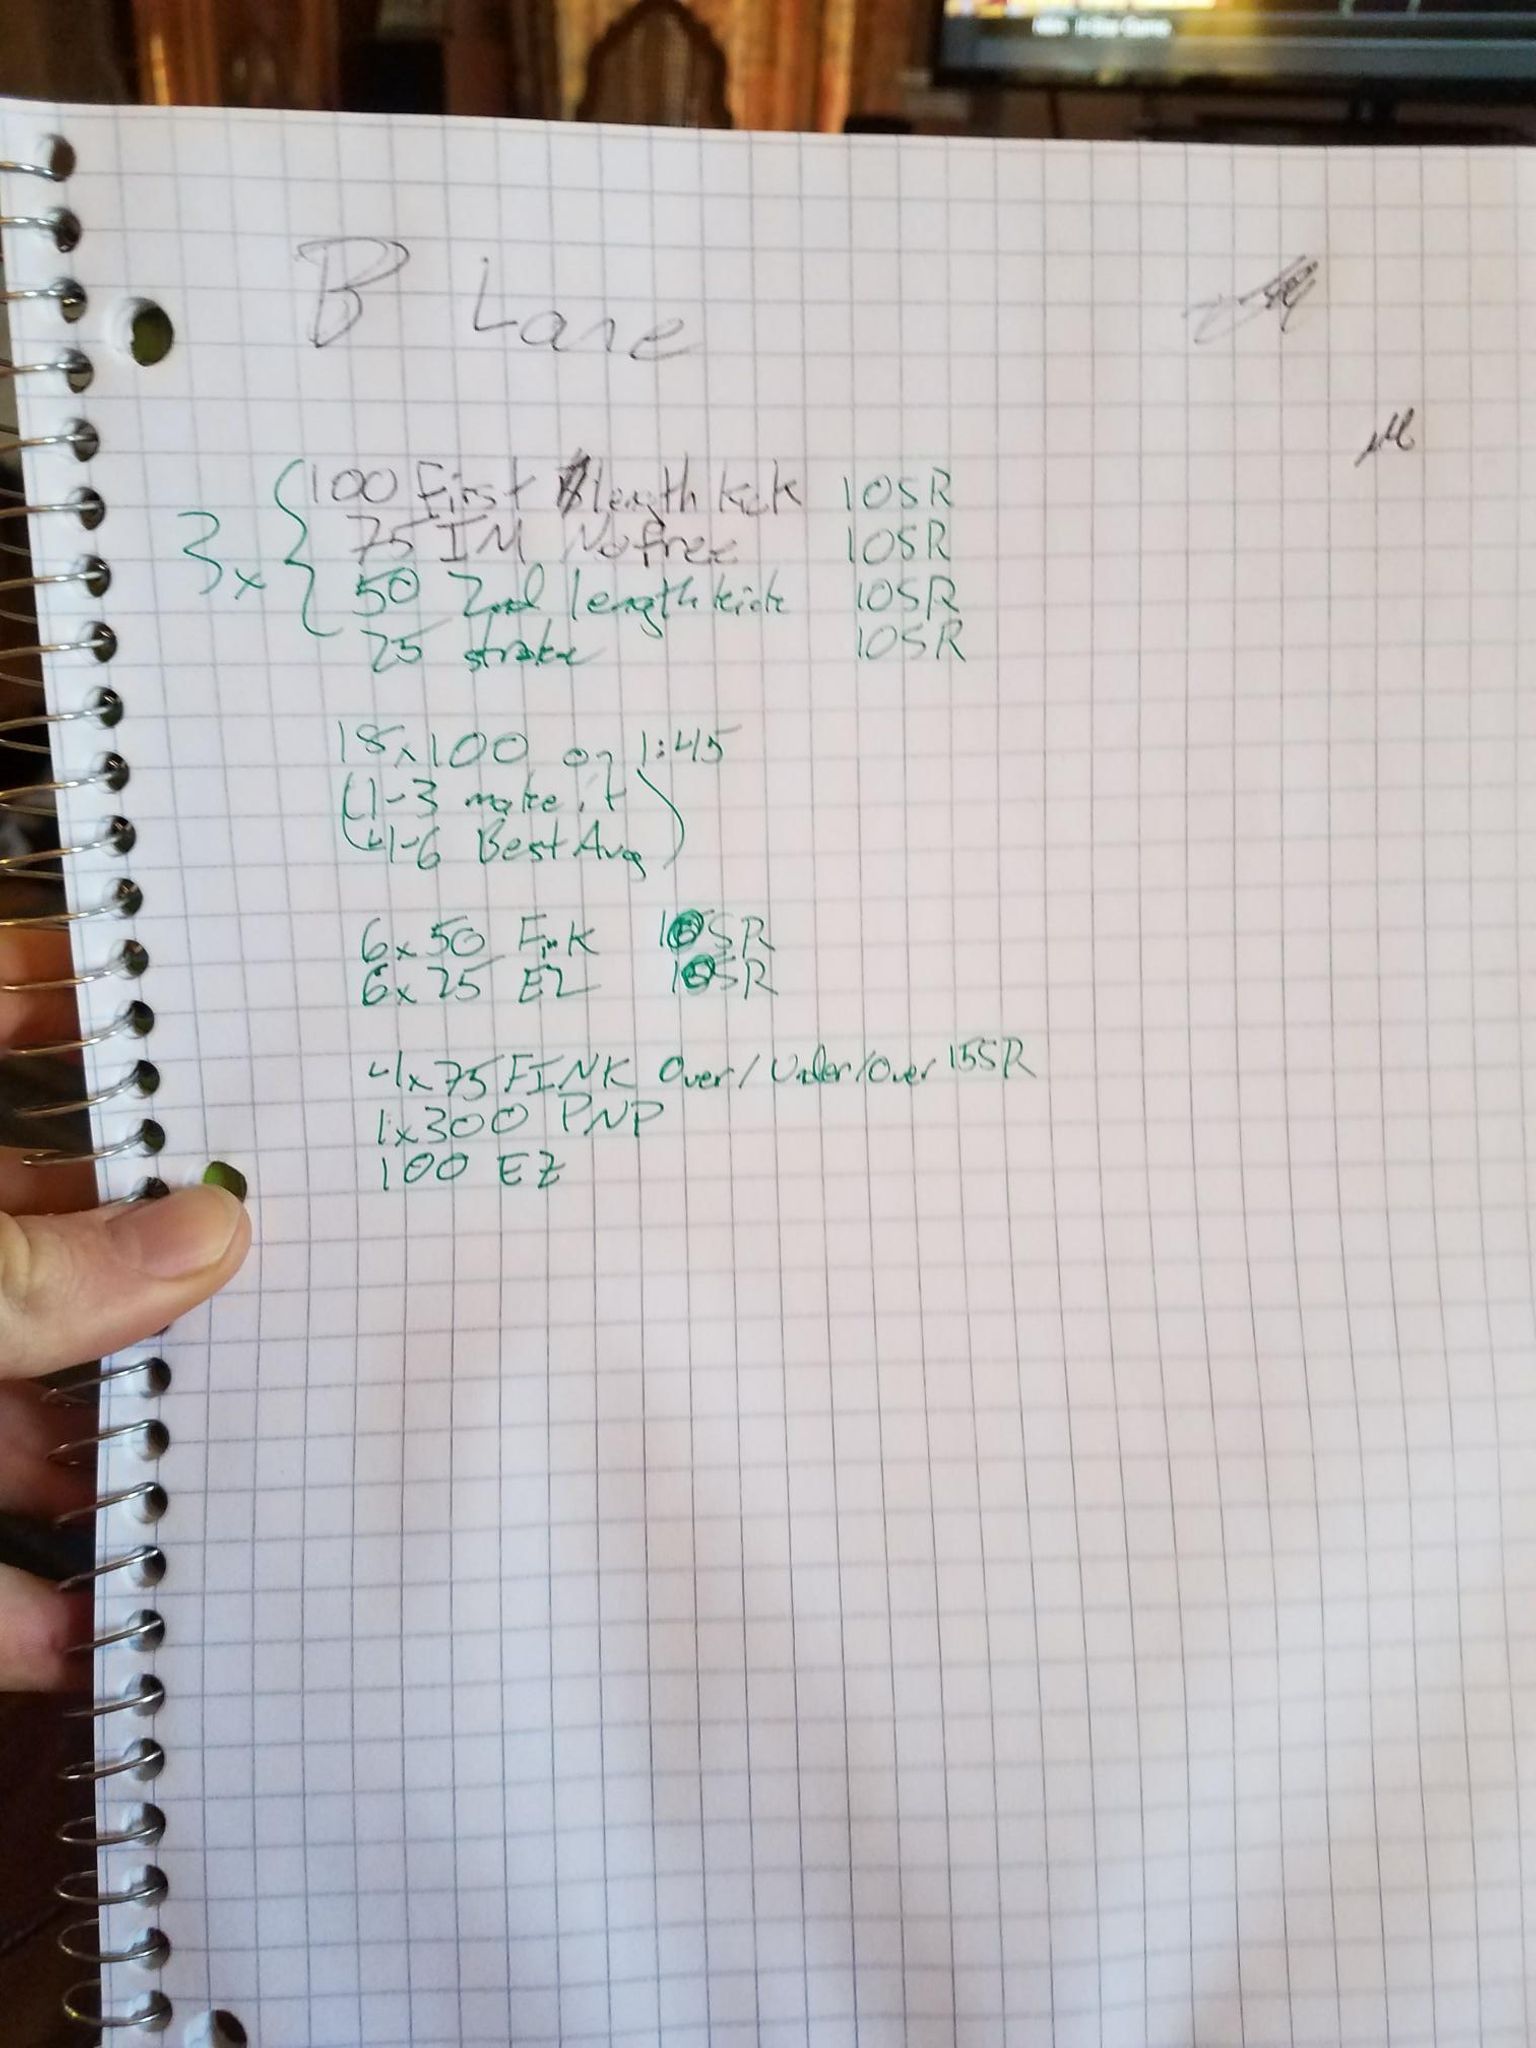 B Lane
3x
100 First length kick 10SR
75 IM No free 10SR
50 2nd length kick 10SR
25 stroke 10SR
18x100 on 1:45
(1-3 make it
4-6 Best Avg)
6x50 FinK 10SR
6x25 EZ 10SR
4x75 FINK Over/Under/Over 15SR
1x300 PNP
100 EZ